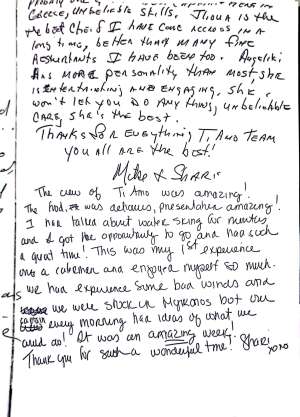 Greece, unbelievable skills. is the
the best chef I have come across in a
long time, better than many fine
restaurants I have been too. Angeliki
has more personality than most she
is entertaining and engaging. She
won't let you do any thing, unbelievable
care, she's the best.
Thanks for everything Ti Amo team
you all are the best!
Mike & Shari
The crew of Ti Amo was amazing!
The food, was delicious, presentation amazing!
I had talked about water skiing for months
and I got the opportunity to go and had such
a great time! This was my 1st experience
on a catamaran and enjoyed myself so much.
We had experience some bad winds and
we were stuck in Mykonos but our
captain every morning had ideas of what we
could do! It was an amazing week!
Thank you for such a wonderful time! Shari
xoxo
as
e